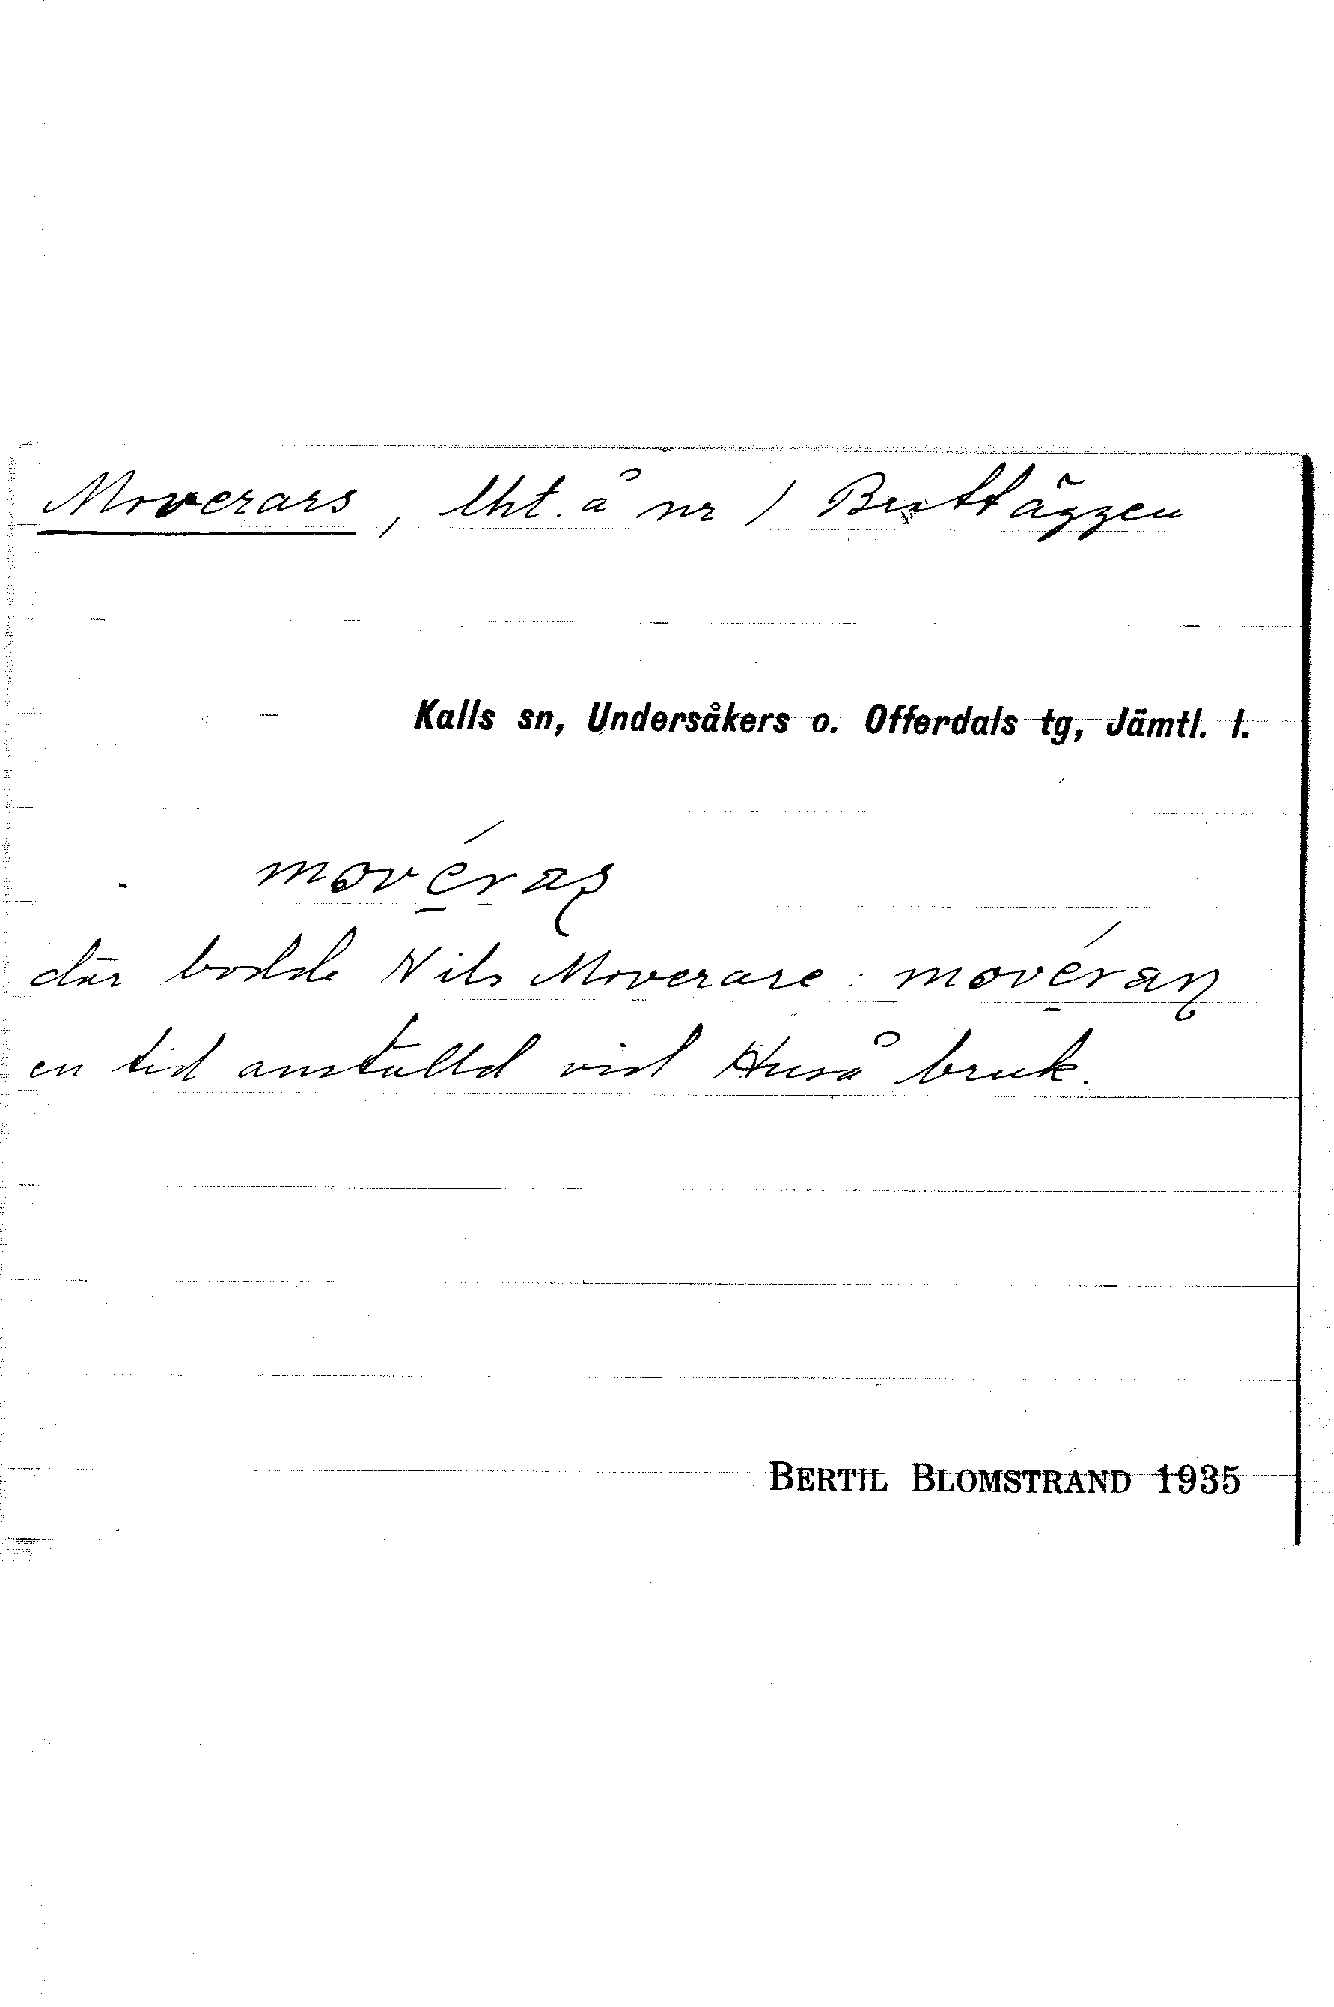 Moverars, lht. å nr 1 Bruttäggen
Kalls sn, Undersåkers o. Offerdals tg, Jämtl. l.
movéras
där bodde Nils Moverare: movéran
en tid anställd vid Huså bruk.
BERTIL BLOMSTRAND 1935